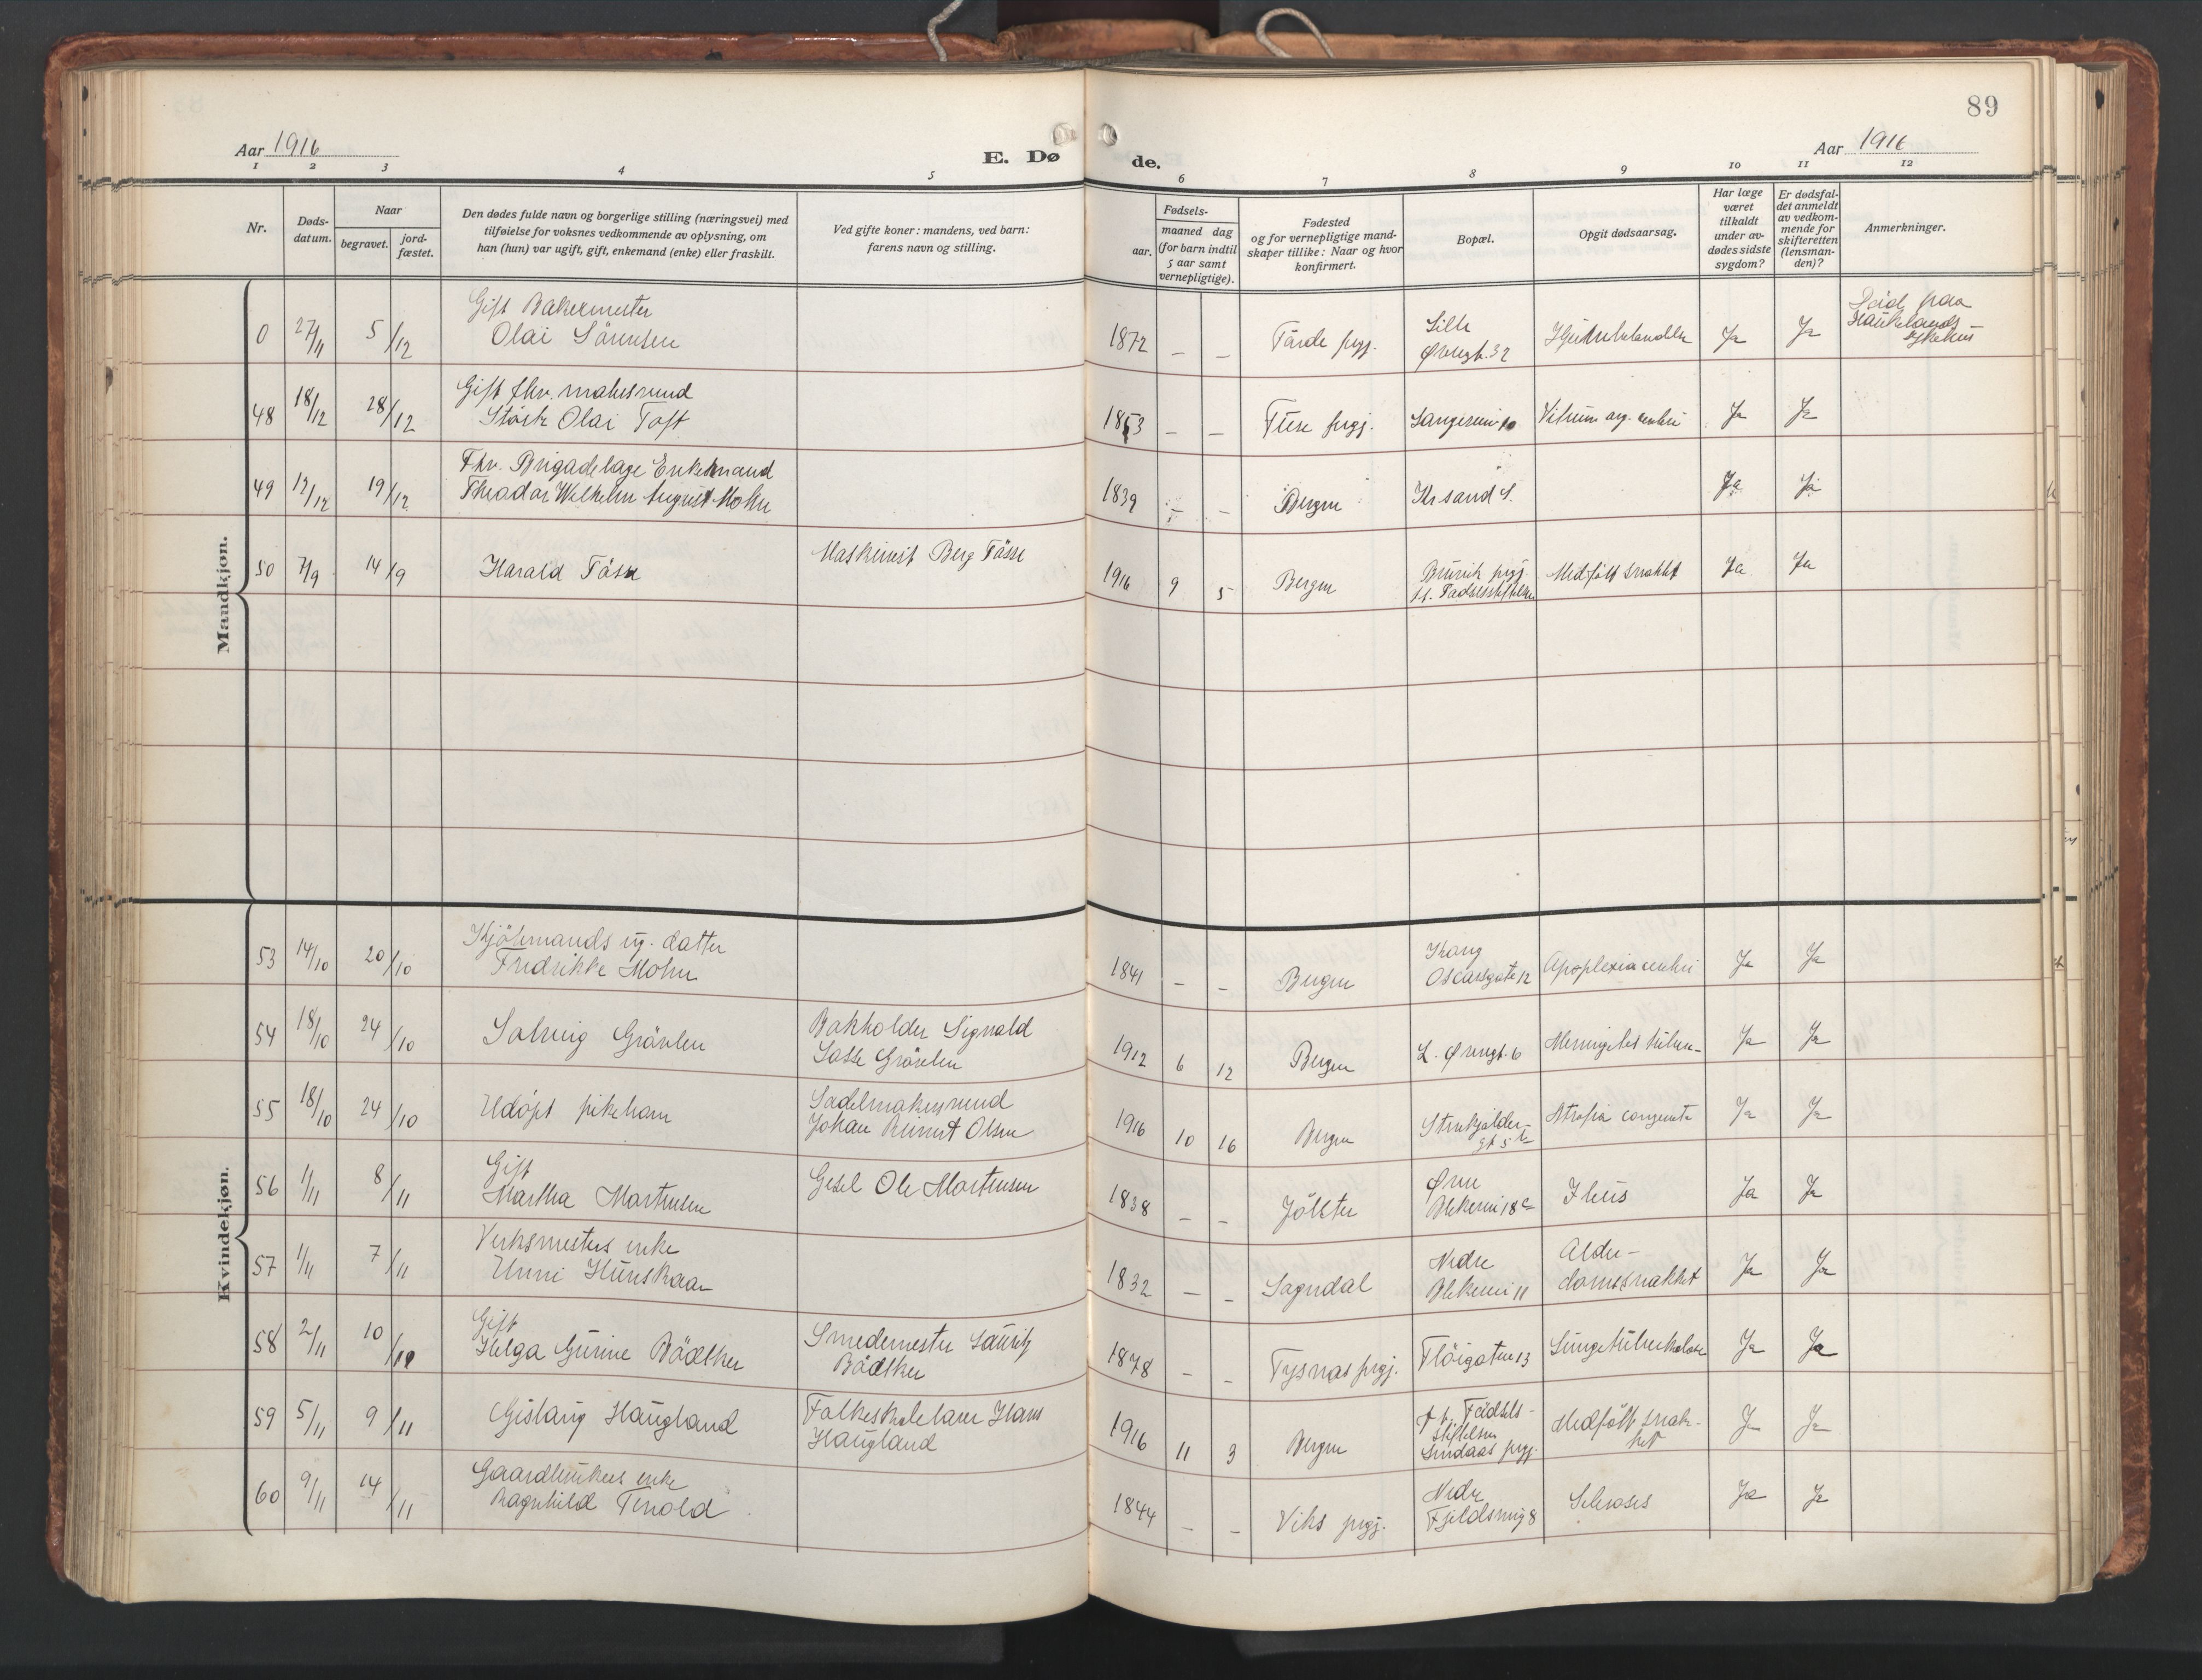 89
Aar 1916
E. Dø
de.
Aar 1916
1 2 3 4 5 6 7 8 9 10 11 12
Nr.
Døds-
datum.
Naar
begravet.
jord-
fæstet.
Den dødes fulde navn og borgerlige stilling (næringsvei) med
tilføielse for voksnes vedkommende av oplysning, om
han (hun) var ugift, gift, enkemand (enke) eller fraskilt.
Ved gifte koner: mandens, ved barn:
farens navn og stilling.
Fødsels-
aar.
maaned dag
(for barn indtil
5 aar samt
vernepligtige).
Fødested
og for vernepligtige mand-
skaper tillike: Naar og hvor
konfirmert.
Bopæl.
Opgit dødsaarsag.
Har læge
været
tilkaldt
under av-
dødes sidste
sygdom?
Er dødsfal-
det anmeldt
av vedkom-
mende for
skifteretten
(lensman-
den)?
Anmerkninger.
Mandkjøn.
0 27/11 5/12 Gift Bakermester
Olai Sörensen
1872 – – prgj. Lille
Øvregt. 32 Ja Ja Död paa
Haukelands
Sykehus
48 18/12 28/12 Gift fhv.
Olai Toft
1863 – – prgj. 10 Vitium org. cordis Ja Ja
49 12/12 19/12 Fhv. Brigadelæge Enkemand
Theodor Wilhelm August Mohn
1839 – – Bergen Krsand S. Ja Ja
50 7/9 14/9 Harald Tösse
Maskinist Berg Tösse
1916 9 5 Bergen Bruvik prgj.
Födselsstiftelsen Medfött svakhet Ja Ja
Kvindekjøn.
53 14/10 20/10 Kjöbmands ug. datter
Fredrikke Mohn
1841 – – Bergen Kong
Oscarsgate 12 Apoplexia cerebri Ja Ja
54 18/10 24/10 Solveig Grävlen
Bokholder Sigvald
Lasse Grävlen
1912 6 12 Bergen L. Øvregt. 6 Meningitis tuberc– Ja Ja
55 18/10 24/10 Udöpt pikebarn
Sadelmakersvend
Johan Reinert Olsen
1916 10 16 Bergen Strukjelder-
gt 5 b Atrofia congenita Ja Ja
56 1/11 8/11 Gift
Martha Mortensen
Gesel Ole Mortensen
1838 – – Jölster Øvre
Blekevei 18c Ileus Ja Ja
57 1/11 7/11 Verksmesters enke
Unni Hunskaar
1832 – – Sogndal Nedre
Blekevei 11 Alder-
domssvakhet Ja Ja
58 2/11 10/11 Gift
Helga Gurine Bödtker
Smedemester Lauritz
Bödtker
1878 – – Tysnes prgj. Flöigaten 13 Lungetuberkulose Ja Ja
59 5/11 9/11 Gislaug Haugland
Folkeskolelærer Hans
Haugland
1916 11 3 Bergen Födsels-
stiftelsen
Lindaas prgj. Medfött svak-
het Ja Ja
60 9/11 14/11 Gaardbrukers enke
Ragnhild Finold
1844 – – Viks prgj. Nedre
Fjeldsmug 8 Sclerosis Ja Ja